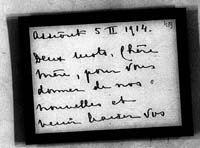 Assiout 5 II 1914.
Deux mots, Chère
mère, pour vous
donner de nos
nouvelles et
venir baiser vos